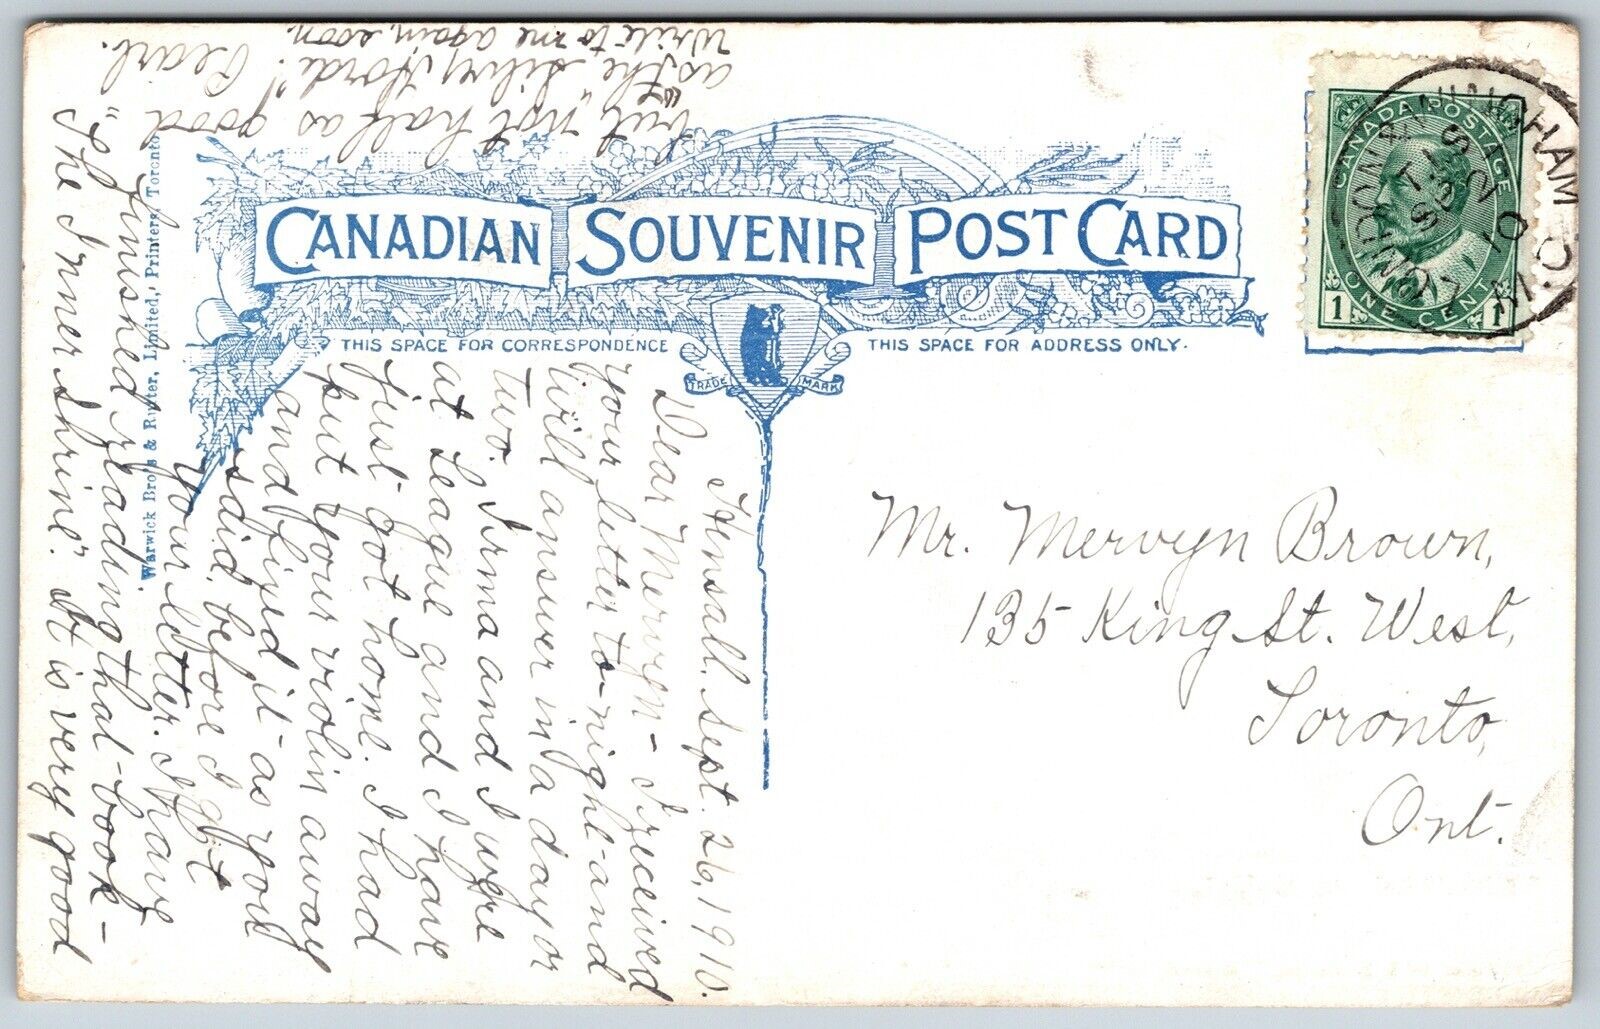 CANADIAN SOUVENIR POST CARD
THIS SPACE FOR CORRESPONDENCE
THIS SPACE FOR ADDRESS ONLY.
TRADE MARK
Warwick Bro's & Rutter, Limited, Printers, Toronto
CANADA POSTAGE
1 ONE CENT 1
LONDON
WINGHAM
M.C.
SP 26
10
Mr. Mervyn Brown,
135 King St. West,
Toronto,
Ont.
Hensall. Sept. 26, 1910.
Dear Mervyn - I received
your letter to-night and
will answer in a day or
two. Irma and I were
at League and I have
just got home. I had
put your violin away
and fixed it as you
said, before I got
your letter. I have
finished reading that book-
"The Inner Shrine". It is very good
but not half as good
as the "Silver Horde"!
Write to me again, soon.
Pearl.